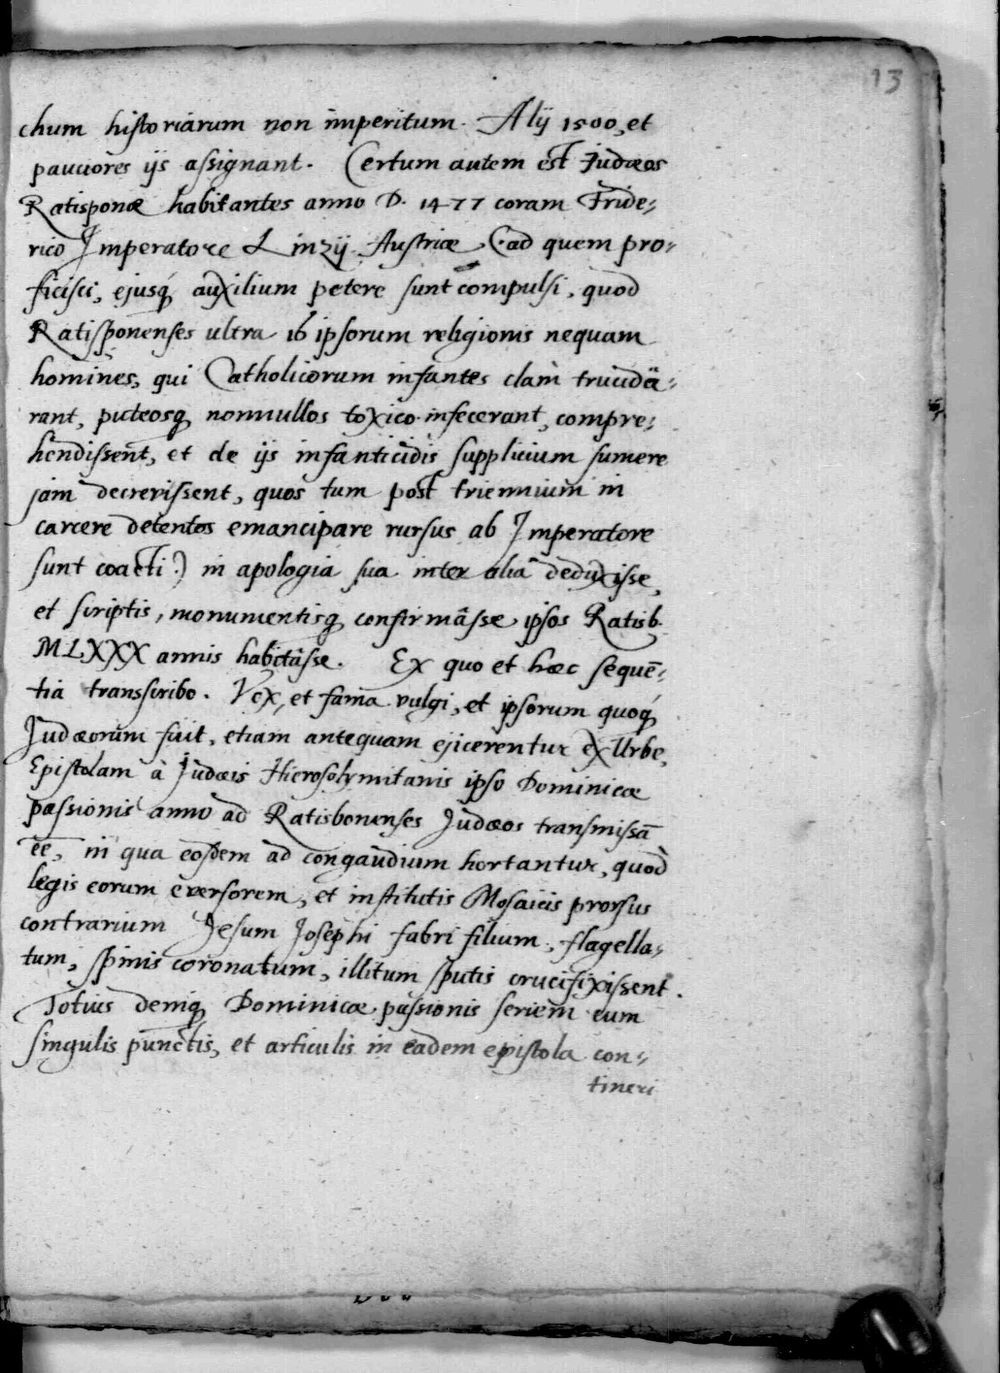 13
chum historiarum non imperitum. Alij 1500, et
pauciores ijs assignant. Certum autem est Judæos
Ratisponæ habitantes anno D. 1477 coram Fride-
rico Imperatore Linzij Austriæ (ad quem pro-
ficisci, ejusq́; auxilium petere sunt compulsi, quod
Ratisponenses ultra 16 ipsorum religionis nequam
homines, qui Catholicorum infantes clàm trucidâ-
rant, puteosq; nonnullos toxico infecerant, compre-
hendissent, et de ijs infanticidis supplicium sumere
jam decrerissent, quos tum post triennium in
carcere detentos emancipare rursus ab Imperatore
sunt coacti) in apologia sua inter alia deduxisse,
et scriptis, monumentisq; confirmâsse ipsos Ratisb.
MLXXX annis habitâsse. Ex quo et hæc sequē-
tia transcribo. Vox, et fama vulgi, et ipsorum quoq́;
Judæorum fuit, etiam antequam ejicerentur ex Urbe,
Epistolam à Judæis Hierosolymitanis ipso Dominicæ
passionis anno ad Ratisbonenses Judæos transmissā
eē, in qua eosdem ad congaudium hortantur, quòd
legis eorum eversorem, et institutis Mosaicis prorsus
contrarium Jesum Josephi fabri filium, flagella-
tum, spinis coronatum, illitum sputis crucifixissent.
Totius deniq; Dominicæ passionis seriem cum
singulis punctis, et articulis in eadem epistola con-
tineri